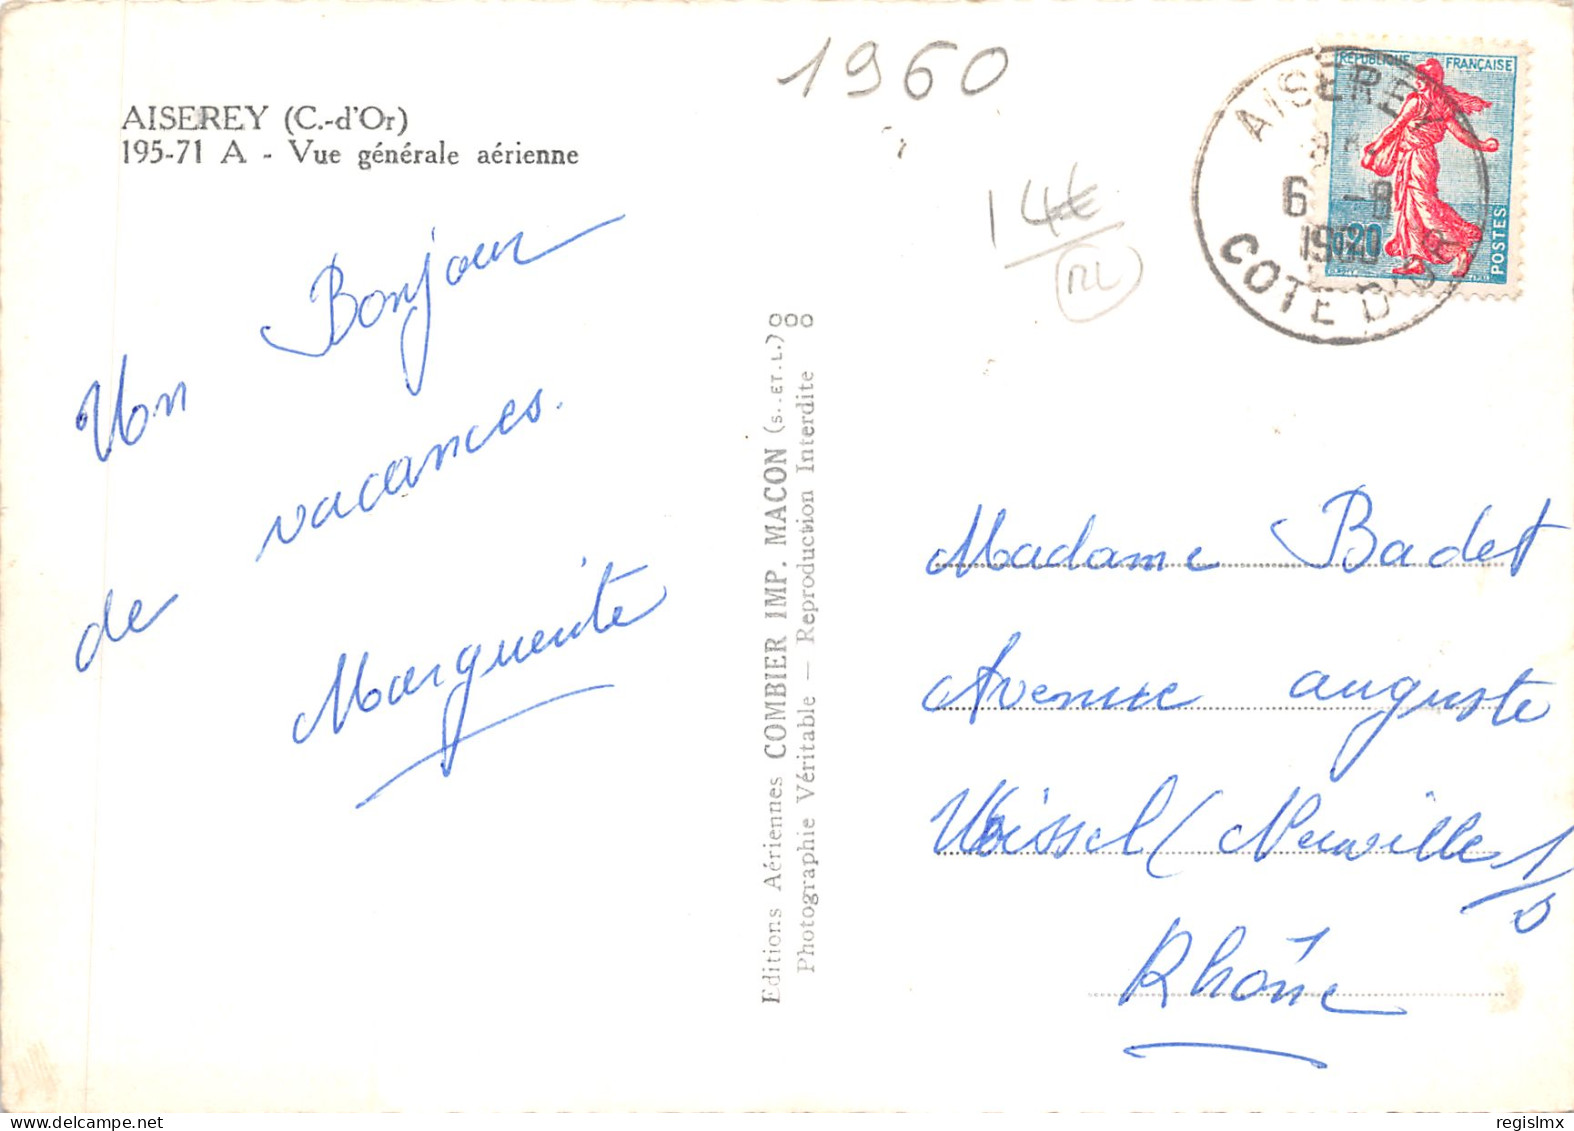 1960
AISEREY (C.-d'Or)
195-71 A - Vue générale aérienne
14€
RL
REPUBLIQUE FRANÇAISE
0,20
POSTES
AISEREY
6 -8
1960
COTE D'OR
Un Bonjour
de vacances.
Marguerite
Editions Aériennes COMBIER IMP. MACON (S.-ET-L.)
Photographie Véritable — Reproduction Interdite
Madame Badet
Avenue auguste
Wissel (Neuville s/s
Rhône
regislmx